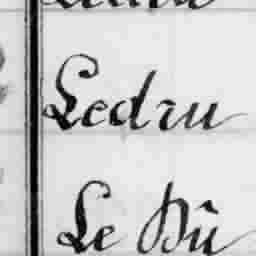 Ledru
Le Dû